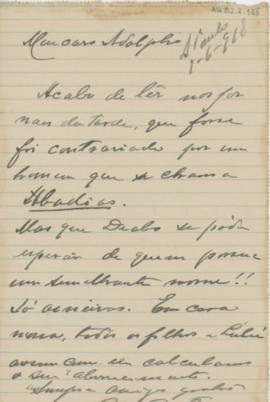 Meu caro Adolpho
S. Paulo
1-6-968
Acabo de lêr nos jor
naes da tarde, que foste
foi contrariado por um
homem que se chama
Abadias.
Mas que Diabo se póde
esperar de quem possue
um semelhante nome!!
Só asneiras. Em casa
nossa, todos os filhos e
assim com eu calculamos
o seu aborrecimento.
Sempre amigo